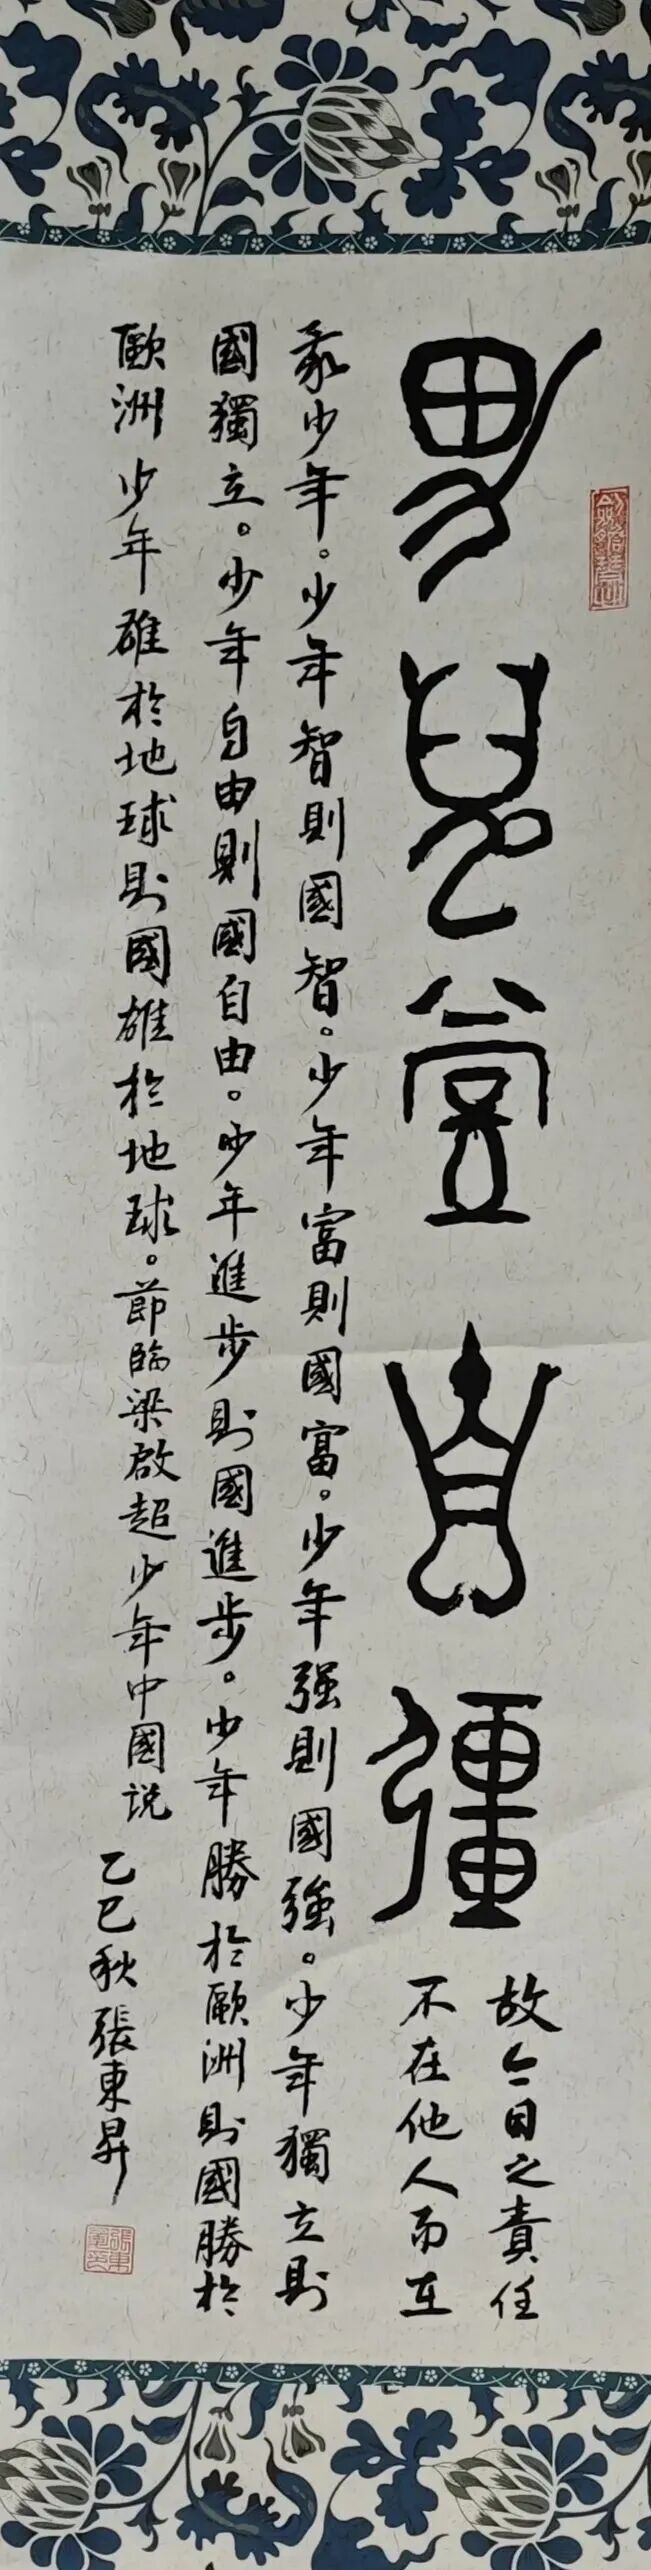 劍膽琴心
男兒當自彊
故今日之責任
不在他人而在
我少年。少年智則國智。少年富則國富。少年强則國強。少年獨立則
國獨立。少年自由則國自由。少年進步則國進步。少年勝於歐洲則國勝於
歐洲少年雄於地球則國雄於地球。節臨梁啟超少年中國説
乙巳秋張東昇
張東昇印